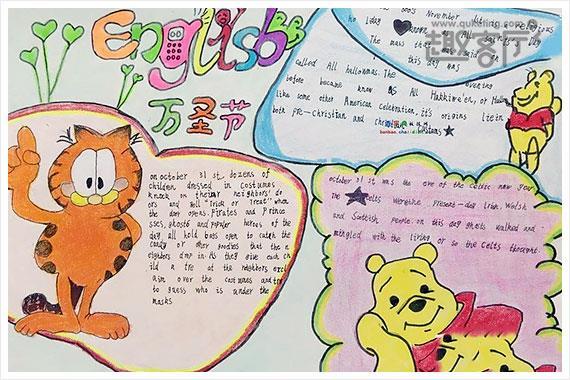 English
万圣节
趣客厅
www.quketing.com
November
said on this day was
called All hallowmas. The evening
before became know as All Hakkiwe'en, or
like some other American celebration, it's origins lie in
both pre-Christian and
on october 31 st dozens of
children dressed in costumes
knock on their neighbors' do
ors and yell "Trick or Treat" when
the door opens. Pirates and Prince
sses, ghosts and popular heroes of the
day all hold bags open to catch the
candy or other goodies that the n
eighbors drop in. As they give each chi
ld a tre at the neighbors excl
aim over the costumes and try
to guess who is under the
masks
october 31 st was the eve of the Celtic new year
The Celts were the present-day Irish, Welsh
and Scottish people on this day ghosts walked and
mingled with the living or so the Celts thought.